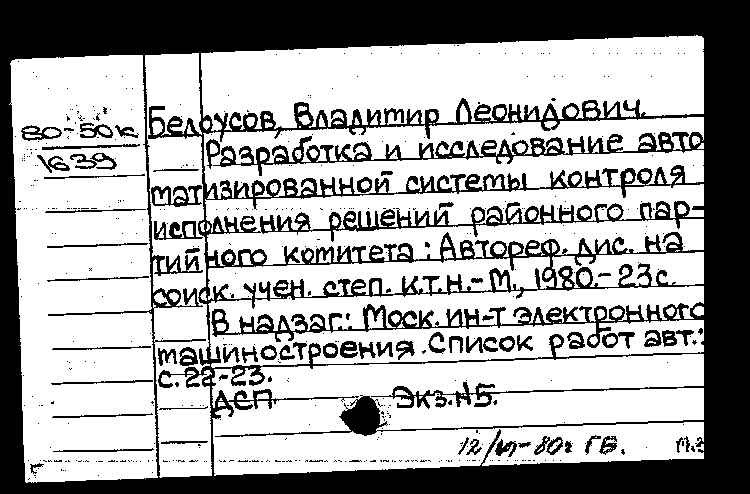 80-50к
1639
Белоусов, Владимир Леонидович.
Разработка и исследование авто
матизированной системы контроля
исполнения решений районного пар-
тийного комитета : Автореф. дис. на
соиск. учен. степ. к.т.н.-М., 1980.-23с.
В надзаг.: Моск. ин-т электронного
машиностроения. Список работ авт.:
с.22-23.
ДСП. Экз.№5.
80г ГБ.